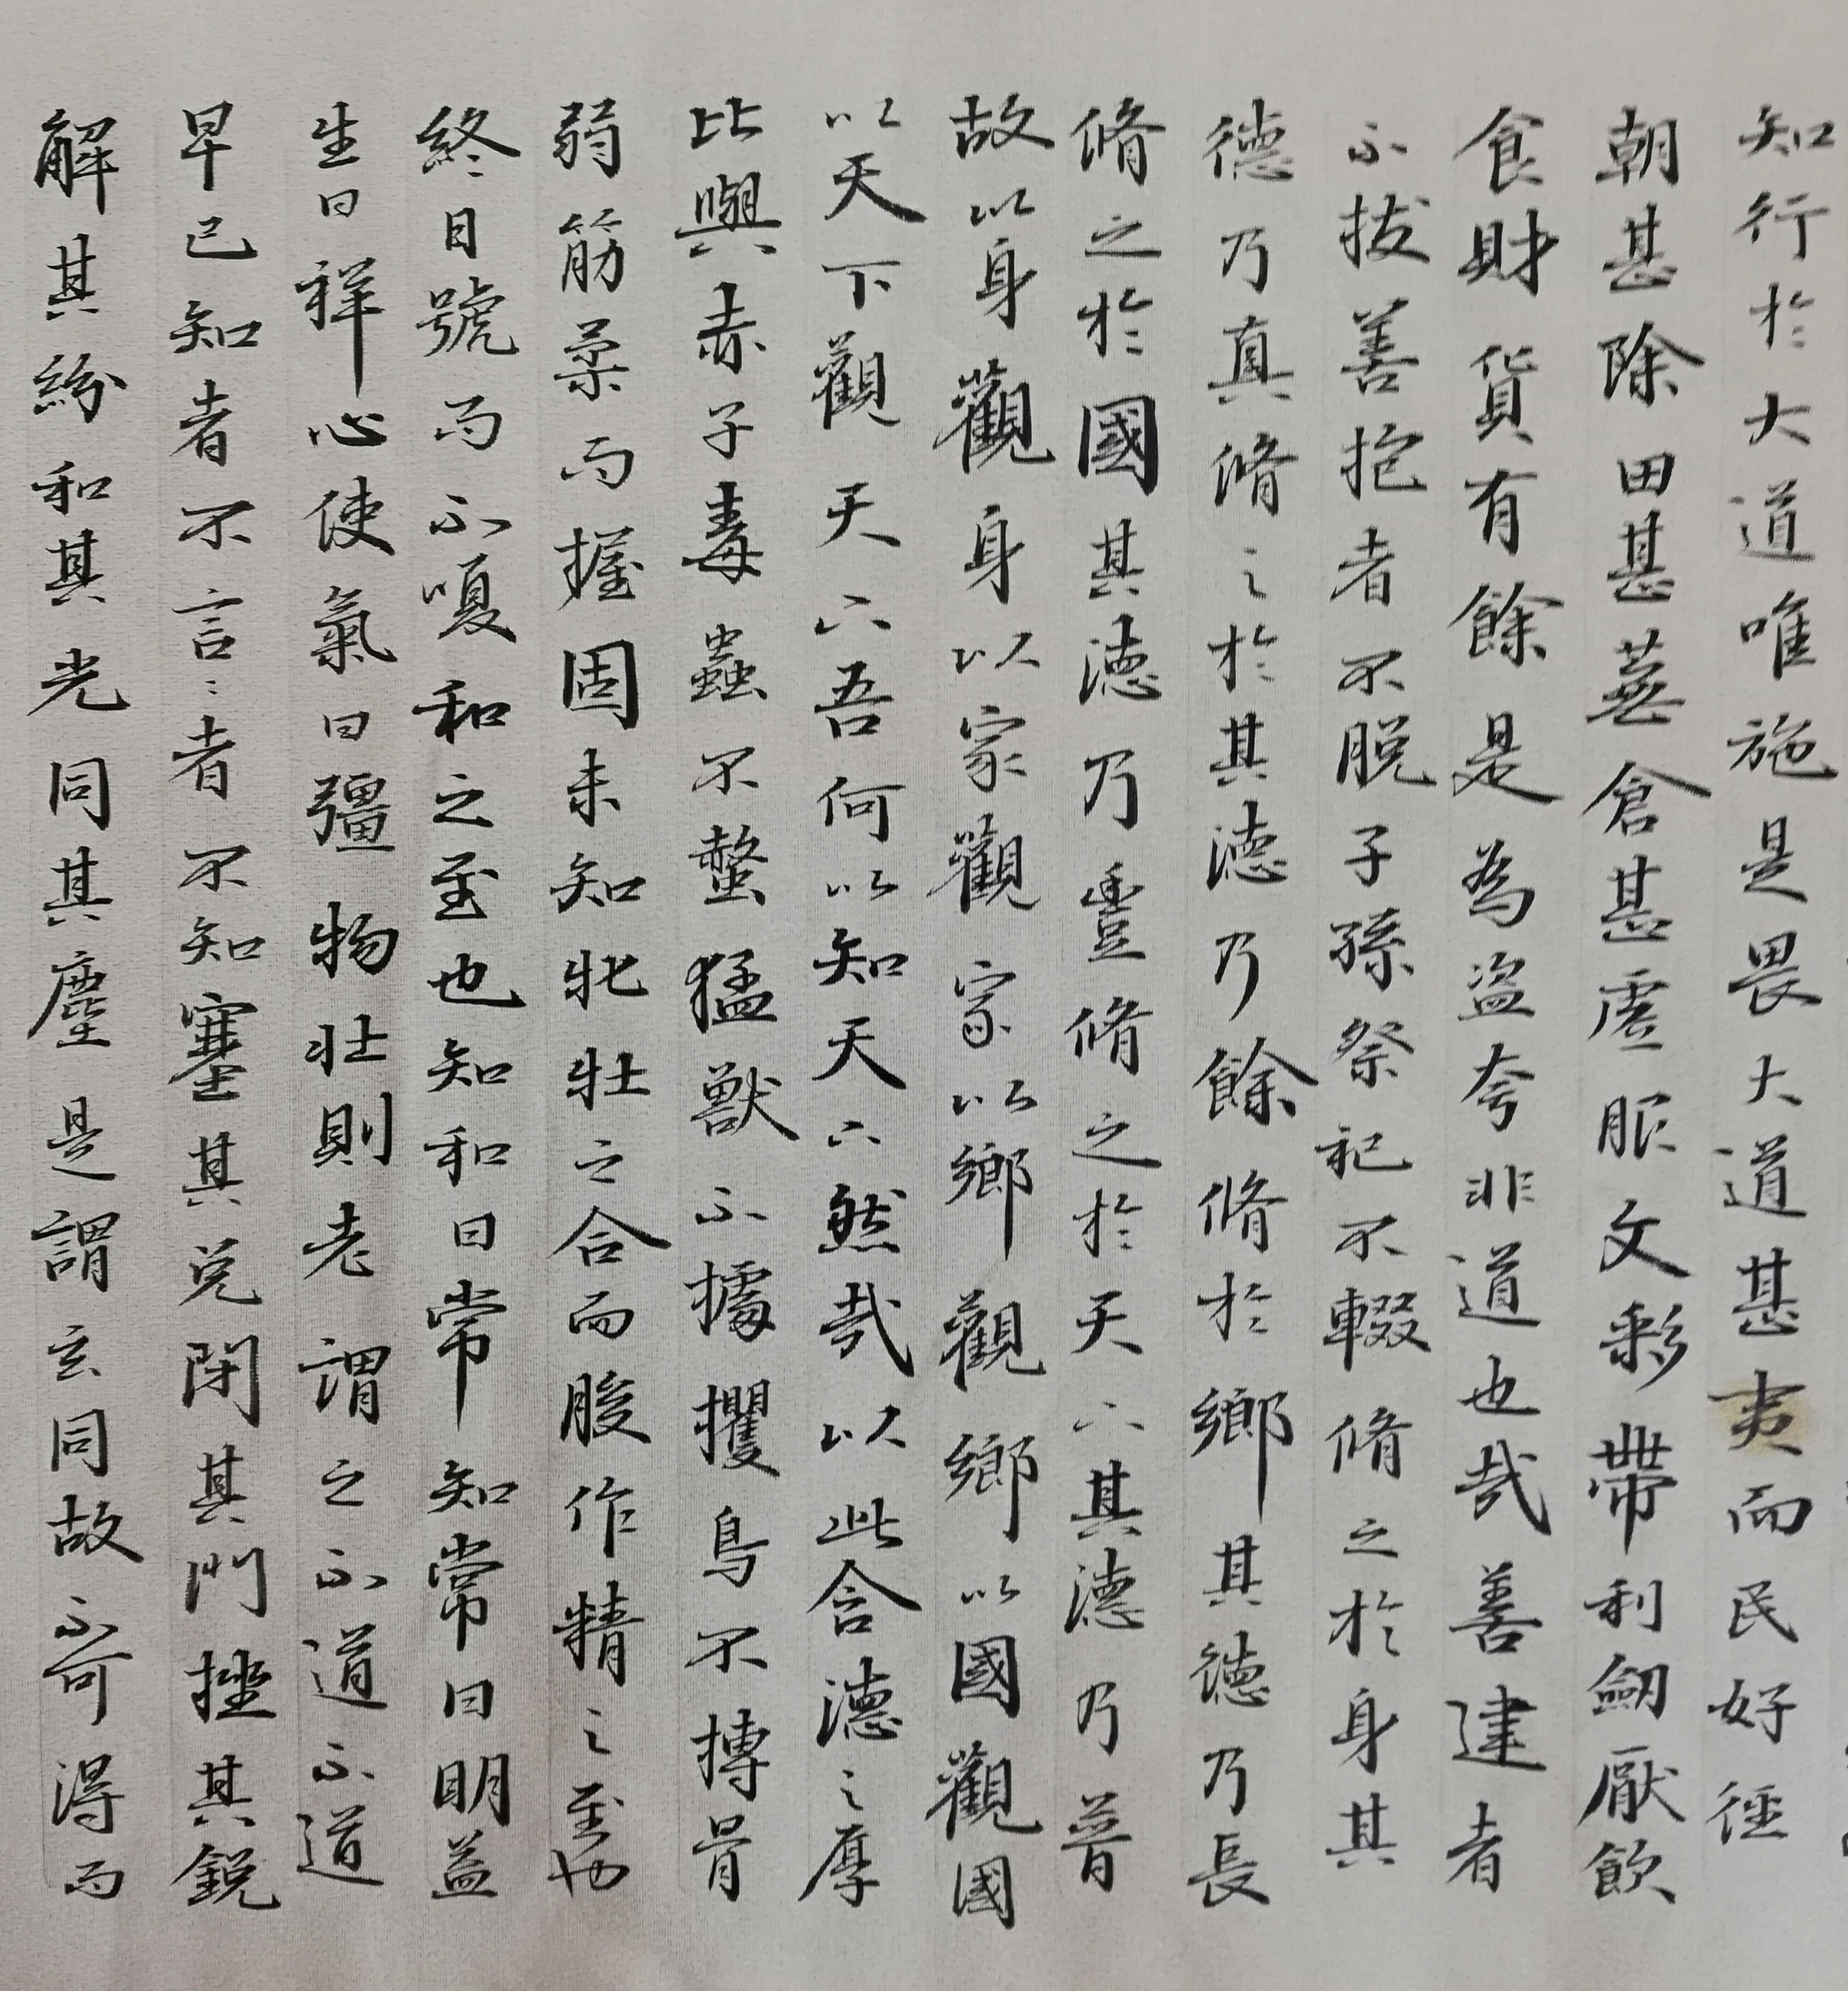 知行於大道唯施是畏大道甚夷而民好徑
朝甚除田甚蕪倉甚虛服文彩帶利劒厭飲
食財貨有餘是為盜夸非道也哉善建者
不拔善抱者不脫子孫祭祀不輟脩之於身其
德乃真脩之於其德乃餘脩於鄉其德乃長
脩之於國其德乃豐脩之於天下其德乃普
故以身觀身以家觀家以鄉觀鄉以國觀國
以天下觀天下吾何以知天下然哉以此含德之厚
比與赤子毒蟲不螫猛獸不據攫鳥不搏骨
弱筋柔而握固未知牝牡之合而朘作精之至也
終日號而不嗄和之至也知和曰常知常曰明益
生曰祥心使氣曰彊物壯則老謂之不道不道
早已知者不言言者不知塞其兌閉其門挫其銳
解其紛和其光同其塵是謂玄同故不可得而